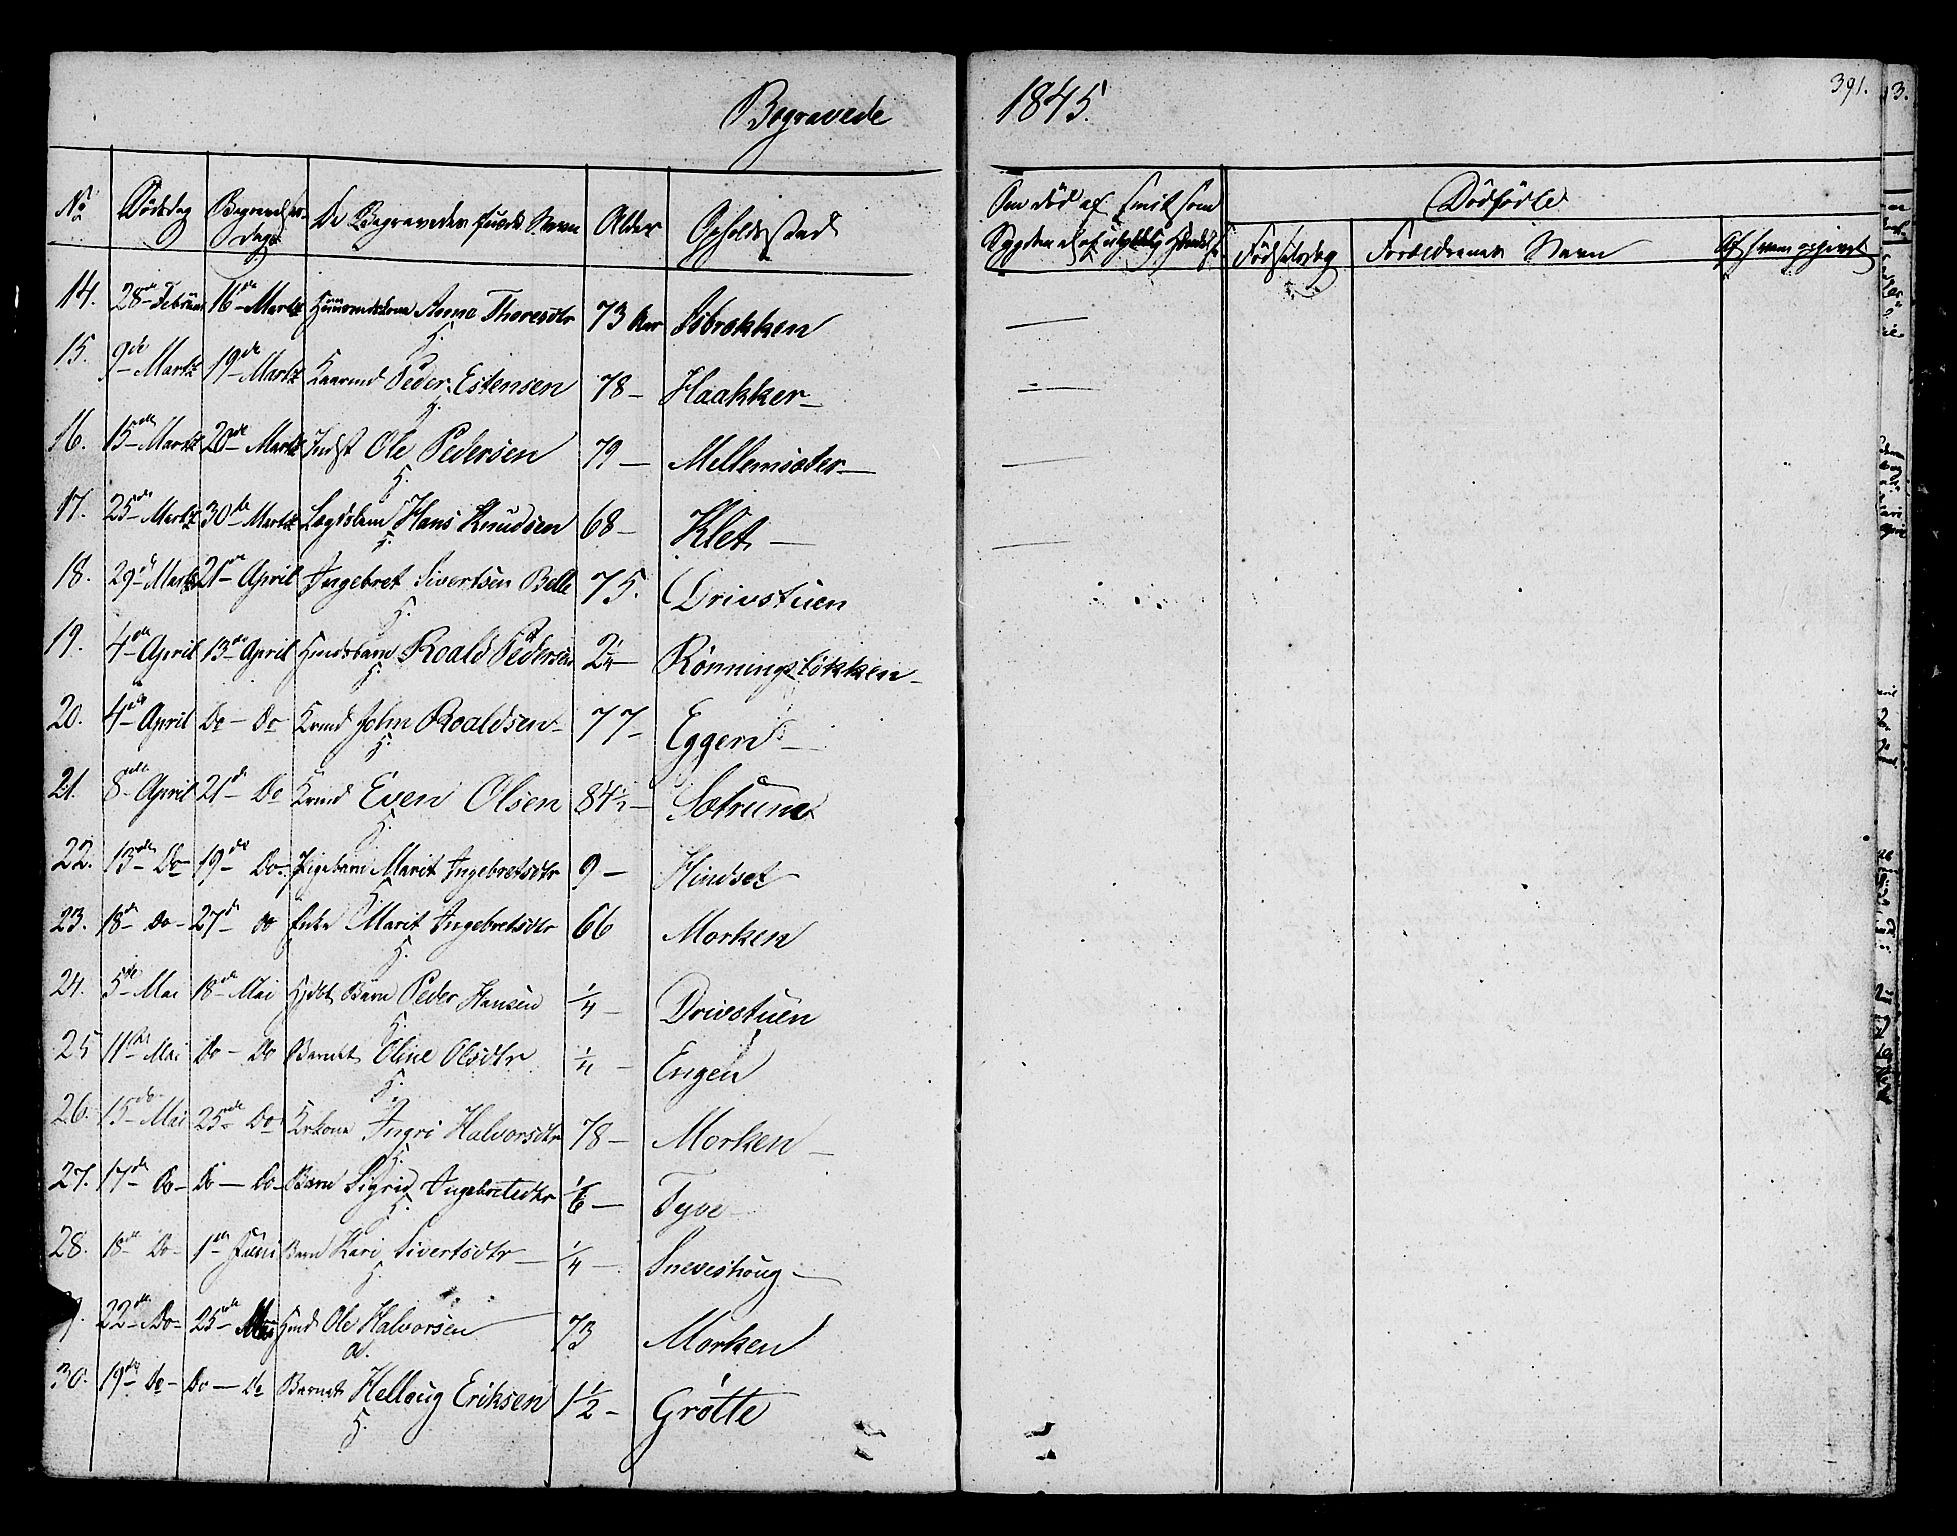 Begravede 1845. 391.
No Dødsdag Begravelsesdage De Begravedes fulde Navn Alder Opholdssted Om død af Smitsom Sygdom el. af ulykkelig Hændelse Dødfødte
Fødselsdag Forældrenes Navn Af hvem opgivet
14. 28de Februar 16de Marts Huusmandskone Anne Thoresdtr 73 Aar Isbrekken —
15. 9de Marts 19de Marts Kaarmd Peder Estensen 78 — Haakker — —
16. 15de Marts 20de Marts Indst Ole Pedersen 79 — Mellemsæter — —
17. 25de Marts 30de Marts Lægdslem Hans Knudsen 68 — Klet — —
18. 29de Marts 21de April Ingebret Sivertsen Belle 75. Drivstuen
19. 4de April 13de April Hmdsbarn Roald Pedersen 2 1/4 — Rønningsløkken —
20. 4de April Do — Do Krmd John Roaldsen — 77 — Eggen —
21. 8de April 21de Do Krmd Even Olsen 84 1/2 — Sætrum
22. 13de Do 19de Do — Pigebarn Marit Ingebretsdtr 9 — Hindset
23. 18de Do — 27de Do Enke Marit Ingebretsdtr 66 Morken
24. 5de Mai 18de Mai Barn Peder Hansen 1/4 — Drivstuen
25 11te Mai Do — Do Barnet Oline Olsdtr 1/4 — Engen
26. 15de Mai 25de Do Krkone Ingri Halvorsdtr 78 — Morken —
27. 17de Do — Do — Do — Barn Sigrid Ingebretsdtr 1/6 — Tyve
28. 18de Do — 1de Juni Barn Kari Sivertsdtr — 1/4 — Sneveshoug —
9. 22de Do — 25de Mai Hmd Ole Halvorsen 73 Morken
a.
30. 19de Do — Do — Do Barnet Helloug Eriksen 1 1/2 — Grøtte